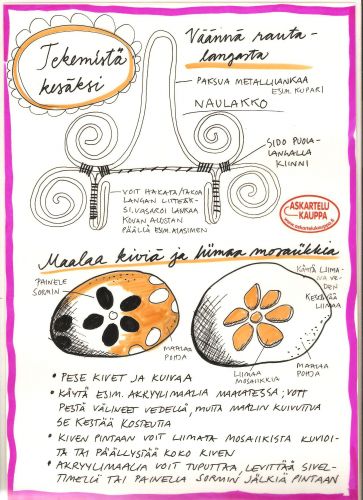 Tekemistä
kesäksi
Väännä rauta-
langasta
PAKSUA METALLILANKAA
ESIM. KUPARI
NAULAKKO
SIDO PUOLA-
LANGALLA
KIINNI
VOIT HAKATA/TAKOA
LANGAN LITTEÄK-
SI. VASAROI LANKAA
KOVAN ALUSTAN
PÄÄLLÄ ESIM. ALASIMEN
ASKARTELU
KAUPPA
www.askartelukauppa.fi
Maalaa kiviä ja liimaa mosaiikkia
PAINELE
SORMIN
MAALAA
POHJA
KÄYTÄ LIIMA-
NA VE-
DEN
KESTÄVÄÄ
LIIMAA
LIIMAA
MOSAIIKKIA
MAALAA
POHJA
• PESE KIVET JA KUIVAA
• KÄYTÄ ESIM. AKRYYLIMAALIA MAALATESSA; VOIT
PESTÄ VÄLINEET VEDELLÄ, MUTTA MAALIN KUIVUTTUA
SE KESTÄÄ KOSTEUTTA
• KIVEN PINTAAN VOIT LIIMATA MOSAIIKISTA KUVIOI-
TA TAI PÄÄLLYSTÄÄ KOKO KIVEN
• AKRYYLIMAALIA VOIT TUPUTTAA, LEVITTÄÄ SIVEL-
TIMELLÄ TAI PAINELLA SORMIN JÄLKIÄ PINTAAN